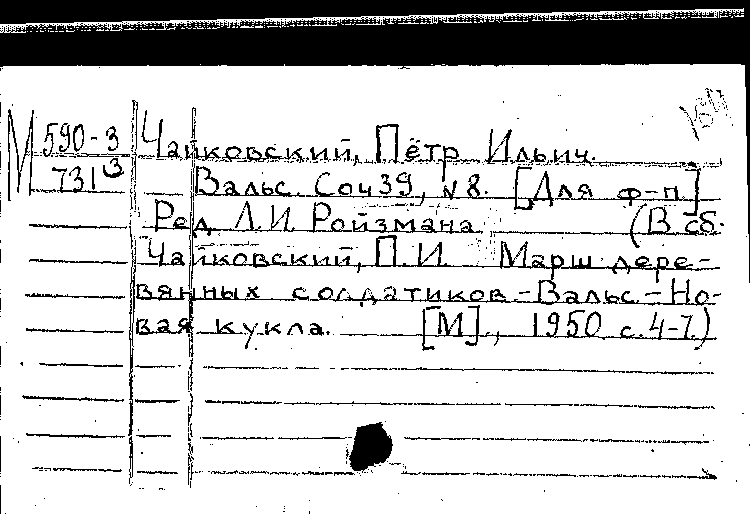 М 590-3
731 3
Чайковский, Пётр Ильич.
Вальс. Соч 39, № 8. [Для ф-п]
Ред. Л.И. Ройзмана (В сб.
Чайковский, П.И. Марш дере-
вянных солдатиков-Вальс-Но-
вая кукла. [М]., 1950. с. 4-7.)